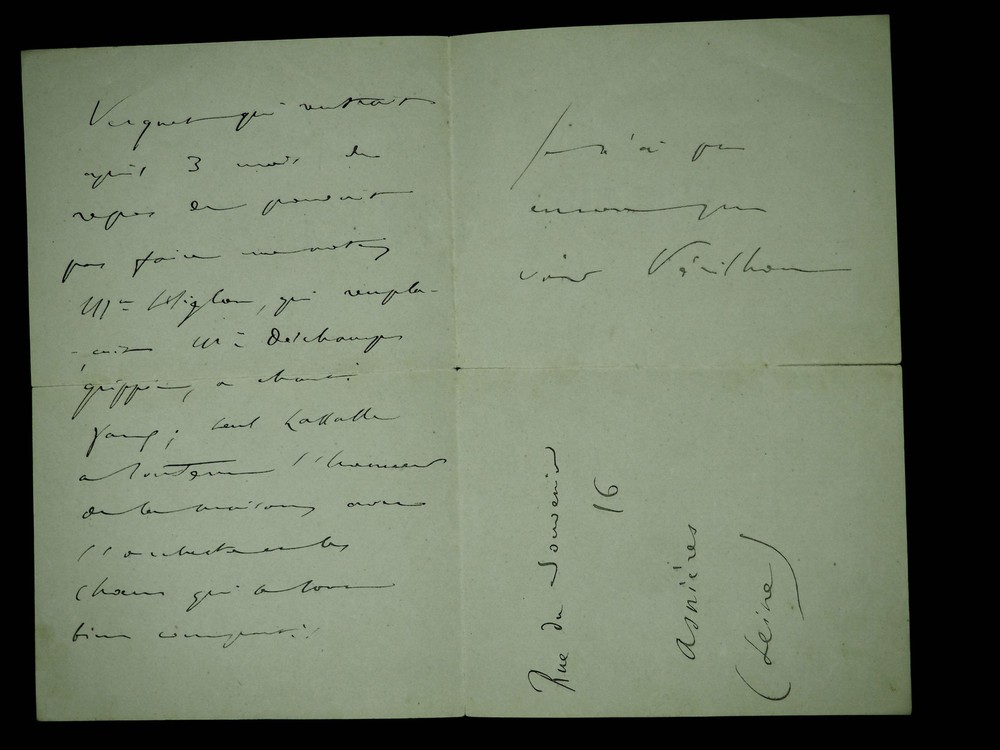 Vergnet qui rentrait
après 3 mois de
repos ne pouvait
pas faire une note,
Mme Figlon, qui rempla-
çait Mme Deschamps
grippée, a chanté
faux; seul Lassalle
a soutenu l'honneur
de la maison, avec
l'orchestre et les
chœurs qui
bien
je n'ai pu
encore
voir Vérilhon
Rue du Souvenir
16
Asnières
(Seine)